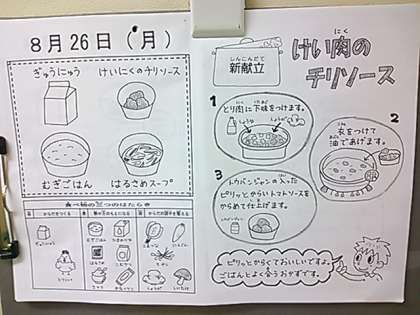 8月26日(月)
ぎゅうにゅう
けいにくのチリソース
むぎごはん
はるさめスープ
食べ物の三つのはたらき
しんこんだて
新献立
けい肉の
にく
チリソース
1
とり肉に下味をつけます。
しょうゆ
しょうが
2
衣をつけて
油であげます。
3
トウバンジャンの入った
ピリッとからいトマトソースを
からめて仕上げます。
ピリッとからくておいしいですよ。
ごはんとよく合うおかずです。